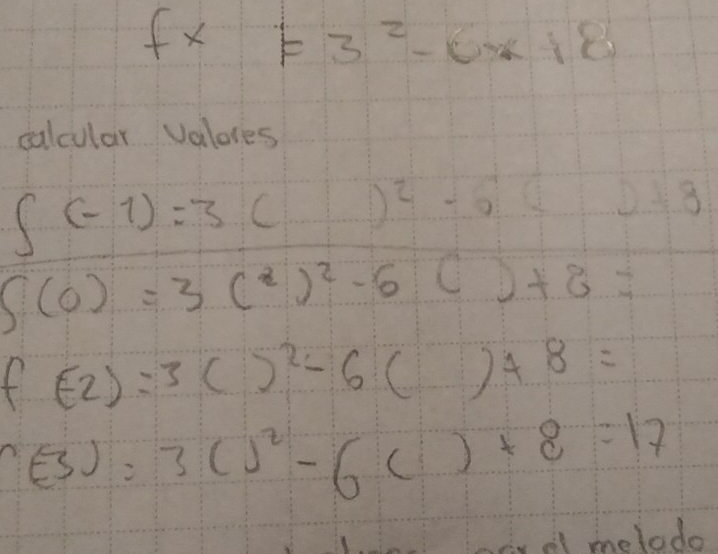 fx = 3² - 6x + 8
calcular valores
f (-1) = 3 ( )² - 6 ( ) + 8
f (0) = 3 (² )² - 6 ( ) + 8 =
f (-2) = 3 ( )² - 6 ( ) + 8 =
(-3) = 3 ( )² - 6 ( ) + 8 = 17
el melodo